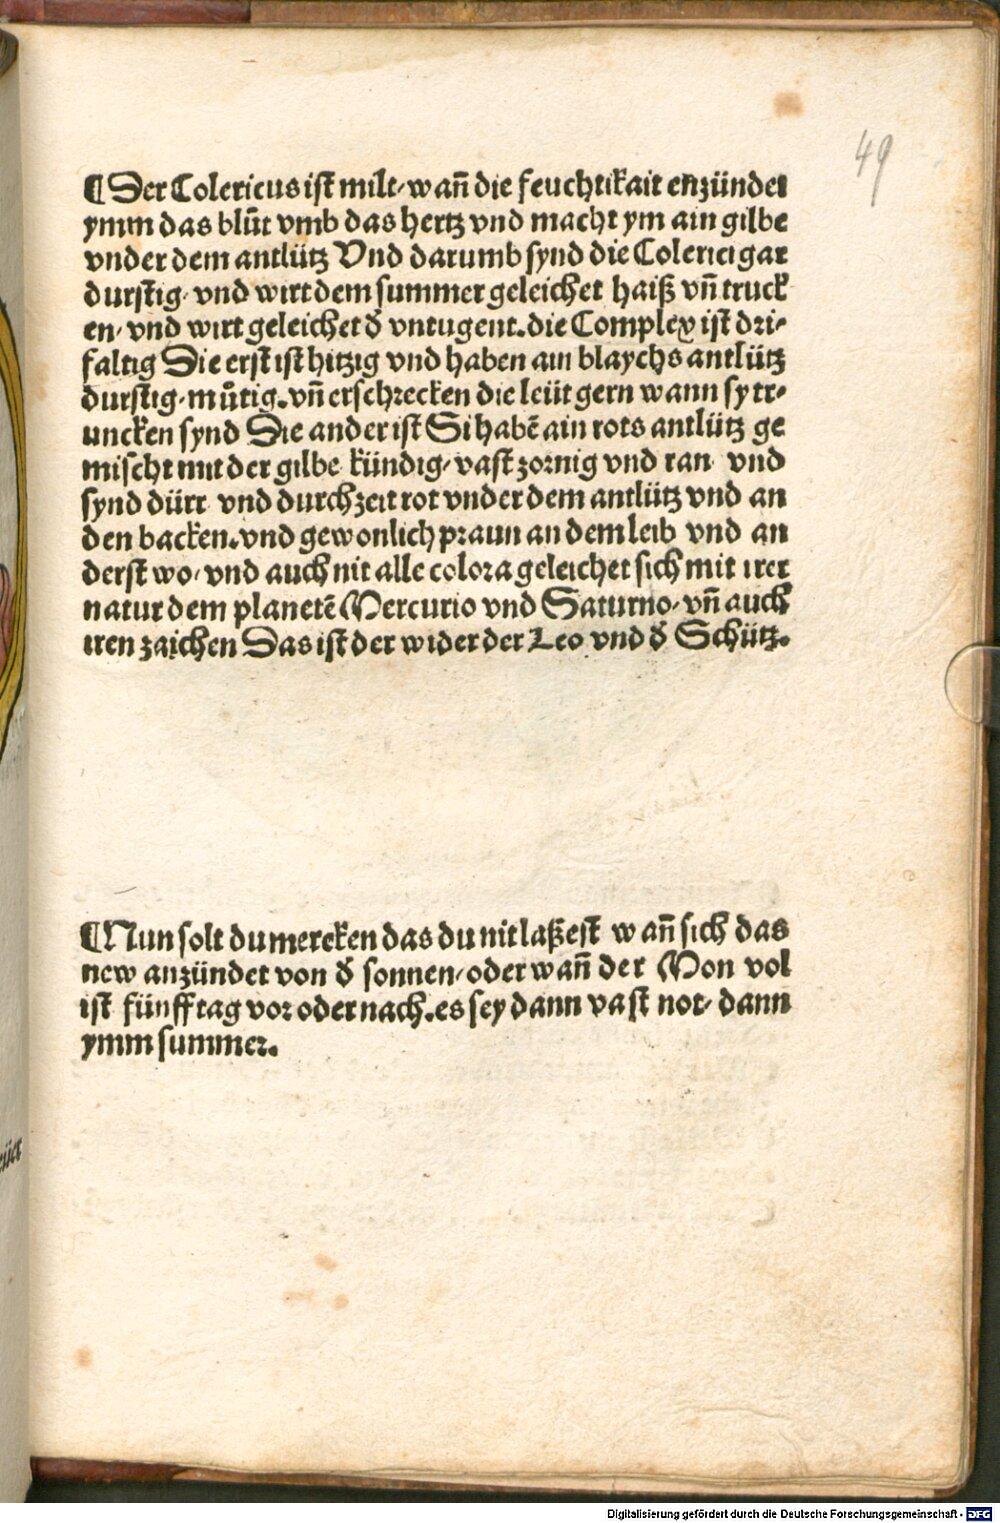 49
¶Der Colericus ist milt/ wañ die feuchtikait enzündet
ymm das blůt vmb das hertz vnd macht ym ain gilbe
vnder dem antlütz Vnd darumb synd die Colerici gar
durstig· vnd wirt dem summer geleichet haiß vñ truck
en/ vnd wirt geleichet đ vntugent. die Complex ist dri-
faltig Die erst ist hitzig vnd haben ain blaychs antlütz
durstig/ můtig. vñ erschrecken die leüt gern wann sy tr-
uncken synd Die ander ist Si habē ain rots antlütz ge
mischt mit der gilbe kündig/ vast zornig vnd ran vnd
synd dürr vnd durchzeit rot vnder dem antlütz vnd an
den backen. vnd gewonlich praun an dem leib vnd an
derst wo/ vnd auch nit alle colora geleichet sich mit irer
natur dem planetē Mercurio vnd Saturno/ vñ auch
iren zaichen Das ist der wider der Leo vnd đ Schütz.
¶Nun solt du mercken das du nit laßest wañ sich das
new anzündet von đ sonnen/ oder wañ der Mon vol
ist fünff tag vor oder nach. es sey dann vast not/ dann
ymm summer.
Digitalisierung gefördert durch die Deutsche Forschungsgemeinschaft - DFG